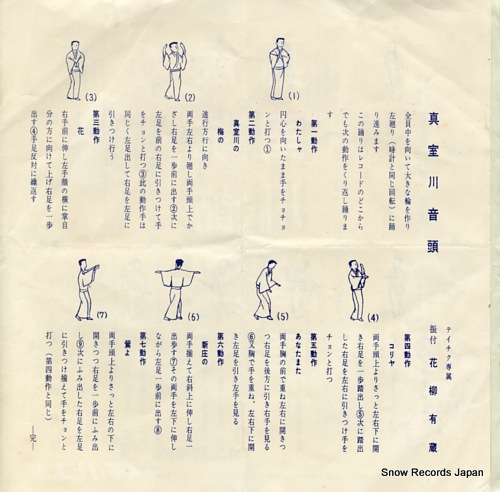 真室川音頭
テイチク専属
振付 花柳有蔵
全員中を向いて大きな輪を作り
左廻り（時計と同じ回転）に踊
り進みます
この踊りはレコードのどこから
でも次の動作をくり返し踊りま
す
第一動作
わたしゃ
円心を向いたまま手をチョチョ
ンと打つ①
第二動作
真室川の
梅の
進行方行に向き
両手左右より廻し両手頭上でか
ざし右足を一歩前に出す②次に
左足を前の右足に引きつけて手
をチョンと打つ③此の動作手は
同じく左足出して右足を左足に
引きつけ行う
第三動作
花
右手前に伸し左手顔の横に掌自
分の方に向けて上げ右足を一歩
出す④手足反対に繰返す
(1)
(2)
(3)
第四動作
コリヤ
両手頭上よりさっと左右下に開
き右足を一歩踏出し⑤次に踏出
した右足を左右に引きつけ手を
チョンと打つ
第五動作
あなたまた
両手胸の前で重ね左右に開きつ
つ右足を後方に引き右手を見る
⑥又胸で手を重ね、左右下に開
き左足を引き左手を見る
第六動作
新庄の
両手揃えて右斜上に伸し右足一
出歩す⑦その両手を左下に伸し
ながら左足一歩前に出す⑧
第七動作
鶯よ
両手頭上よりさっと左右の下に
開きつつ右足を一歩前にふみ出
し⑨次にふみ出した右足を左足
に引きつけ揃えて手をチョンと
打つ（第四動作と同じ）
―完―
(4)
(5)
(6)
(7)
Snow Records Japan